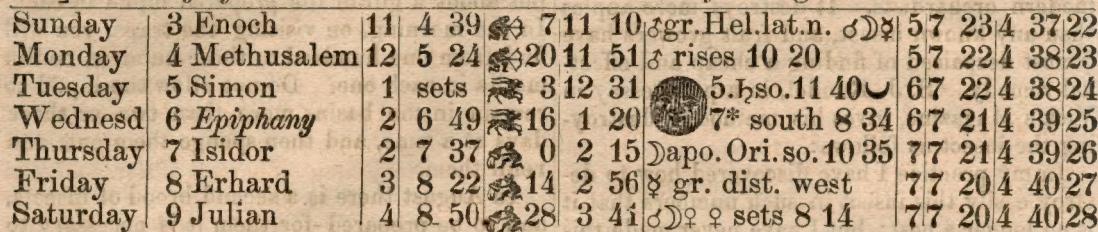 Sunday 3 Enoch 11 4 39 7 11 10 ♂gr.Hel.lat.n. ☌☽☿ 5 7 23 4 37 22
Monday 4 Methusalem 12 5 24 20 11 51 ♂ rises 10 20 5 7 22 4 38 23
Tuesday 5 Simon 1 sets 3 12 31 5.♄so.11 40 6 7 22 4 38 24
Wednesd 6 Epiphany 2 6 49 16 1 20 7* south 8 34 6 7 21 4 39 25
Thursday 7 Isidor 2 7 37 0 2 15 ☽apo.Ori.so.10 35 7 7 21 4 39 26
Friday 8 Erhard 3 8 22 14 2 56 ☿ gr. dist. west 7 7 20 4 40 27
Saturday 9 Julian 4 8 50 28 3 41 ☌☽♀ ♀ sets 8 14 7 7 20 4 40 28